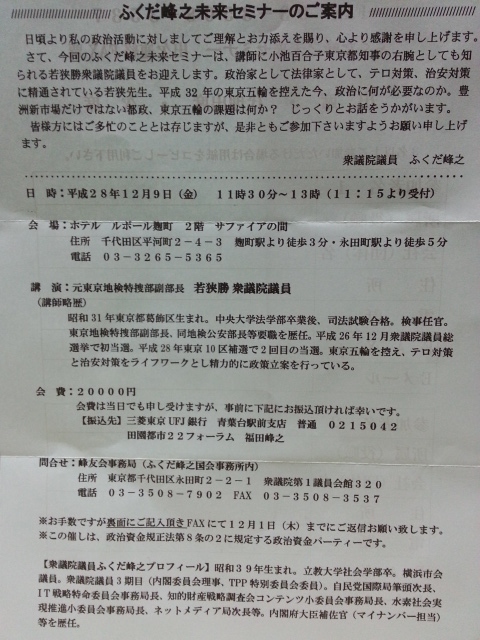 ふくだ峰之未来セミナーのご案内
日頃より私の政治活動に対しましてご理解とお力添えを賜り、心より感謝を申し上げます。
さて、今回のふくだ峰之未来セミナーは、講師に小池百合子東京都知事の右腕としても知
られる若狭勝衆議院議員をお迎えします。政治家として法律家として、テロ対策、治安対策
に精通されている若狭先生。平成32年の東京五輪を控えた今、政治に何が必要なのか。豊
洲新市場だけではない都政、東京五輪の課題は何か？ じっくりとお話をうかがいます。
皆様方にはご多忙のこととは存じますが、是非ともご参加下さいますようお願い申し上げ
ます。
衆議院議員 ふくだ峰之
日 時：平成28年12月9日（金） 11時30分～13時（11：15より受付）
会 場：ホテル ルポール麹町 2階 サファイアの間
住所 千代田区平河町2－4－3 麹町駅より徒歩3分・永田町駅より徒歩5分
電話 03－3265－5365
講 演：元東京地検特捜部副部長 若狭勝 衆議院議員
（講師略歴）
昭和31年東京都葛飾区生まれ。中央大学法学部卒業後、司法試験合格。検事任官。
東京地検特捜部副部長、同地検公安部長等要職を歴任。平成26年12月衆議院議員総
選挙で初当選。平成28年東京10区補選で2回目の当選。東京五輪を控え、テロ対策
と治安対策をライフワークとし精力的に政策立案を行っている。
会 費：20000円
会費は当日でも申し受けますが、事前に下記にお振込頂ければ幸いです。
【振込先】三菱東京UFJ銀行 青葉台駅前支店 普通 0215042
田園都市22フォーラム 福田峰之
問合せ：峰友会事務局（ふくだ峰之国会事務所内）
住所 東京都千代田区永田町2－2－1 衆議院第1議員会館320
電話 03－3508－7902 FAX 03－3508－3537
※お手数ですが裏面にご記入頂きFAXにて12月1日（木）までにご返信お願い致します。
※この催しは、政治資金規正法第8条の2に規定する政治資金パーティーです。
【衆議院議員ふくだ峰之プロフィール】昭和39年生まれ。立教大学社会学部卒。横浜市会
議員。衆議院議員3期目（内閣委員会理事、TPP特別委員会委員）。自民党国際局筆頭次長、
IT戦略特命委員会事務局長、知的財産戦略調査会コンテンツ小委員会事務局長、水素社会実
現推進小委員会事務局長、ネットメディア局次長等。内閣府大臣補佐官（マイナンバー担当）
等を歴任。